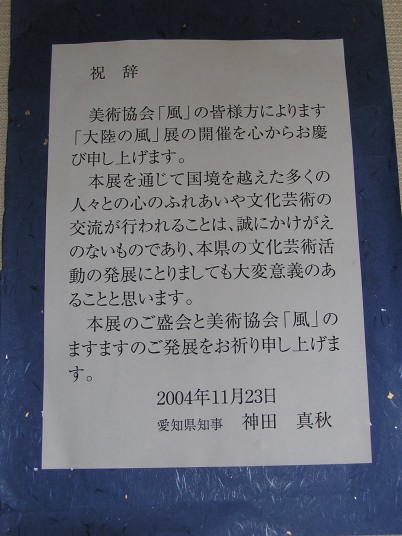 祝 辞
美術協会「風」の皆様方によります
「大陸の風」展の開催を心からお慶
び申し上げます。
本展を通じて国境を越えた多くの
人々との心のふれあいや文化芸術の
交流が行われることは、誠にかけがえ
のないものであり、本県の文化芸術活
動の発展にとりましても大変意義のあ
ることと思います。
本展のご盛会と美術協会「風」の
ますますのご発展をお祈り申し上げま
す。
2004年11月23日
愛知県知事 神田 真秋